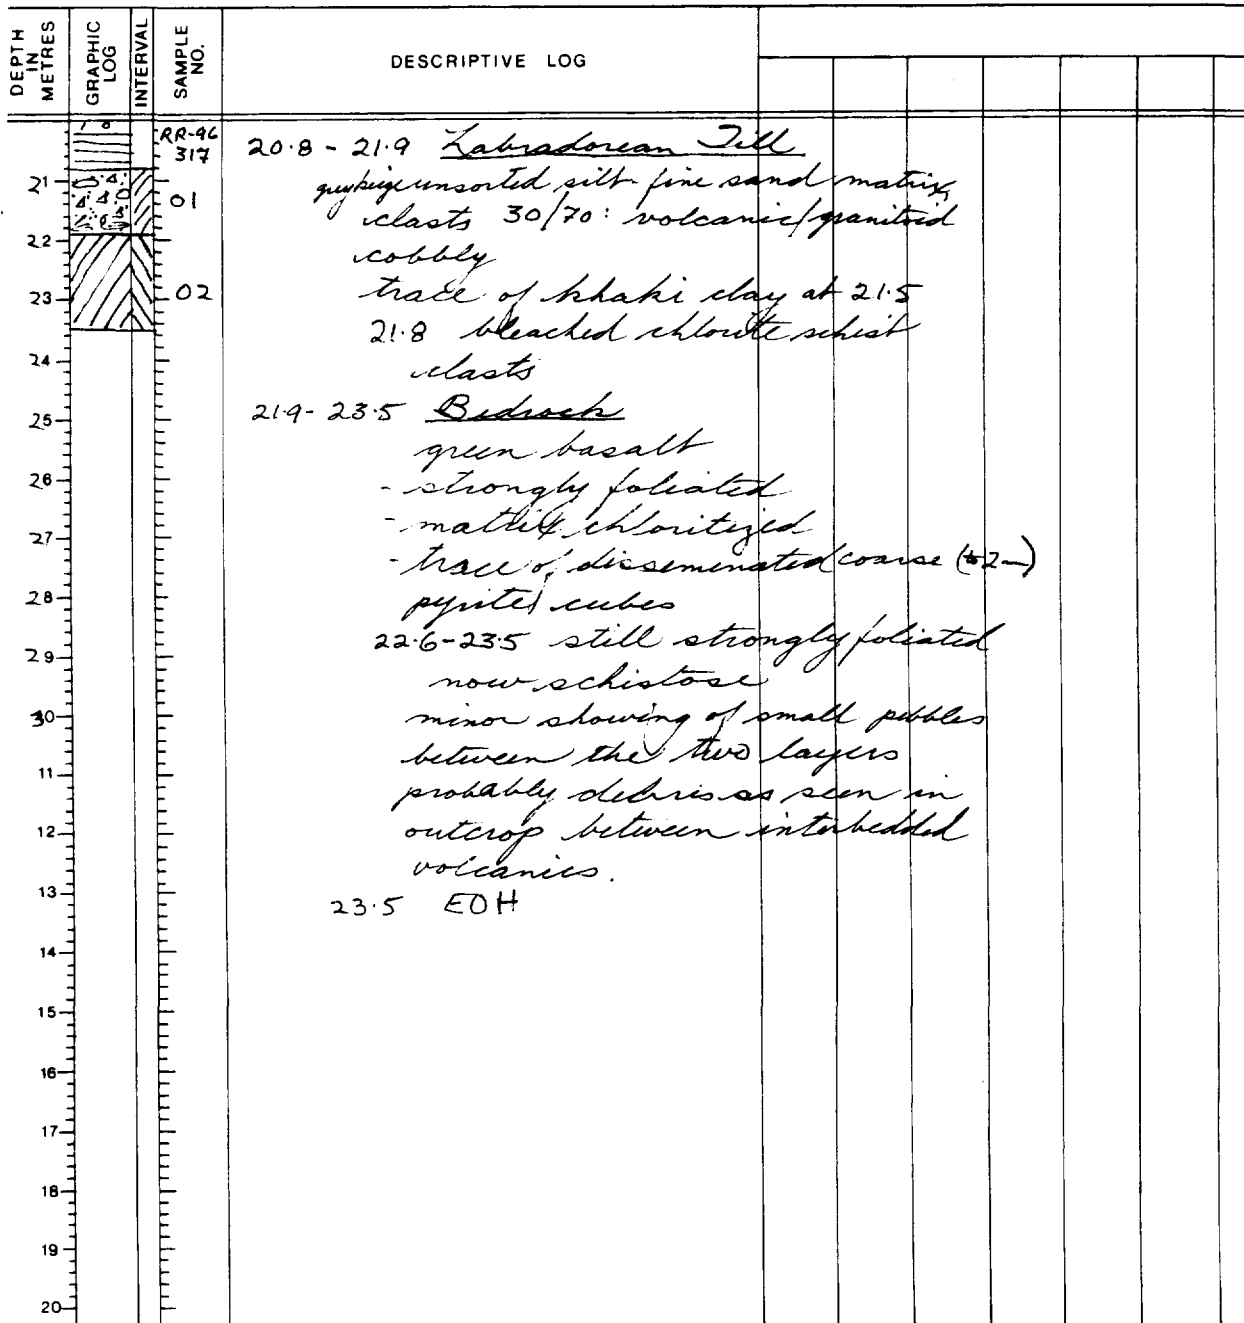 DEPTH IN METRES
GRAPHIC LOG
INTERVAL
SAMPLE NO.
DESCRIPTIVE LOG
RR-96
317
20.8 - 21.9 Labradorean Till
grey beige unsorted silt-fine sand matrix,
21
01
clasts 30/70: volcanic/granitoid
22
cobbly
23
02
trace of khaki clay at 21.5
21.8 bleached chlorite schist
24
clasts
25
21.9-23.5 Bedrock
green basalt
26
- strongly foliated
27
- matrix chloritized
- trace of disseminated coarse (to 2 )
28
pyrite cubes
29
22.6-23.5 still strongly foliated
now schistose
30
minor showing of small pebbles
between the two layers
11
probably debris as seen in
12
outcrop between interbedded
volcanics.
13
23.5 EOH
14
15
16
17
18
19
20